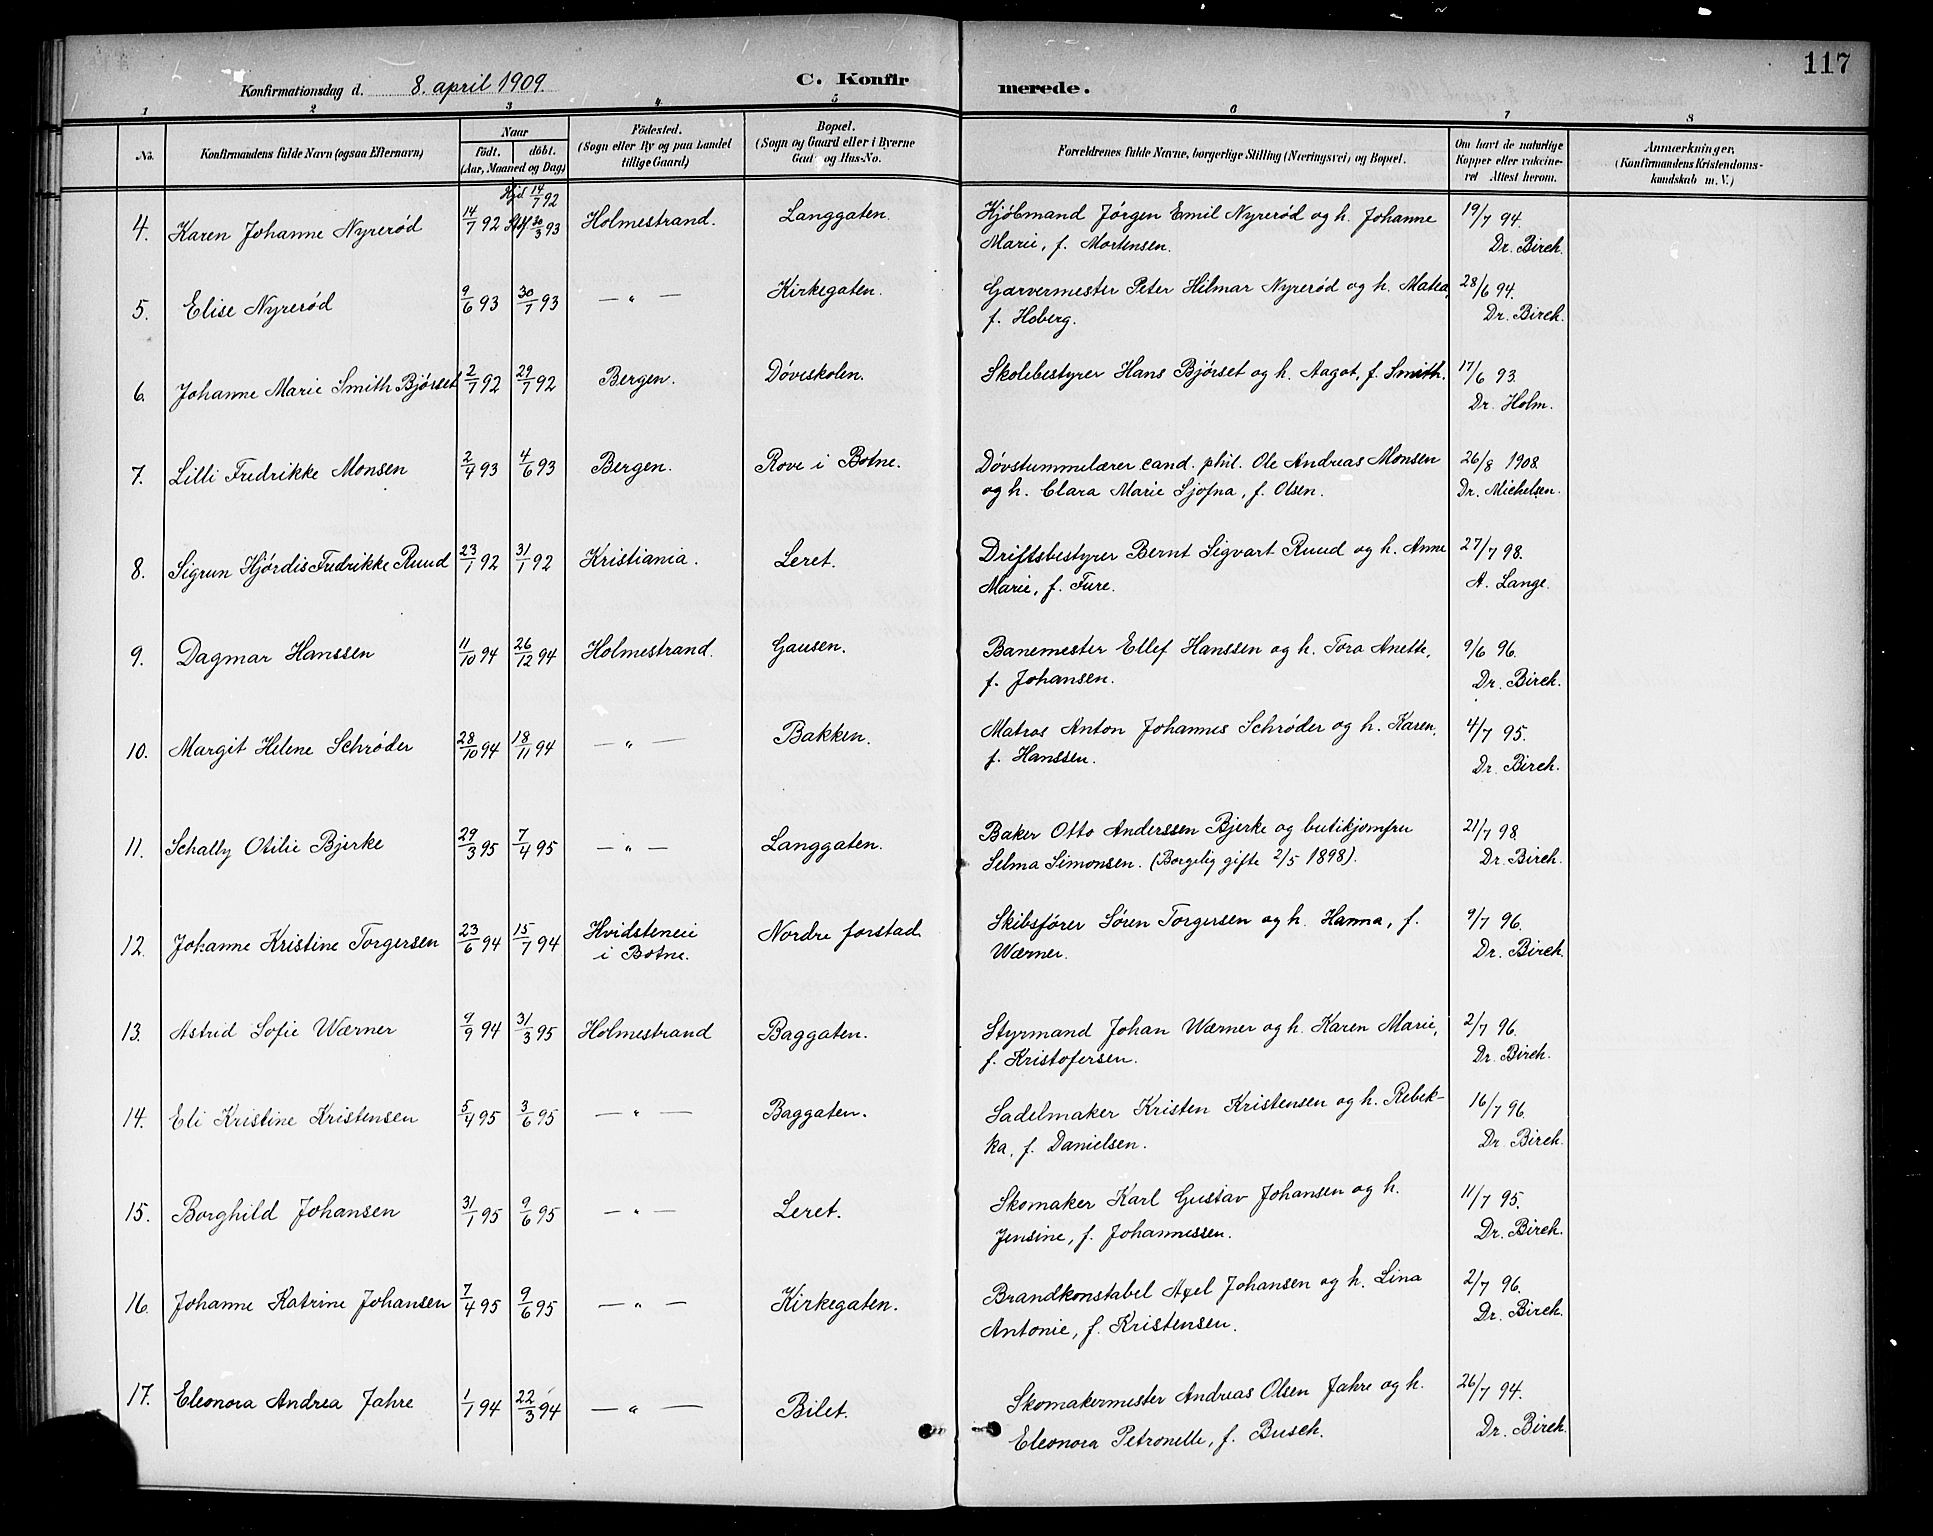 117
Konfirmationsdag d. 8. april 1909. C. Konfirmerede.
1 2 3 4 5 6 7 8
No. Konfirmandens fulde Navn (ogsaa Efternavn) Naar født. døbt. (Aar, Maaned og Dag) Fødested. (Sogn eller By og paa Landet tillige Gaard) Bopæl. (Sogn og Gaard eller i Byerne Gade og Hus-No. Forældrenes fulde Navne, borgerlige Stilling (Næringsvei) og Bopæl. Om havt de naturlige Kopper eller vakcineret Attest herom. Anmærkninger, (Konfirmandens Kristendomskundskab m. V.)
4. Karen Johanne Nyrerød 14/7 92 Hjd 14/7 92 Stdf. 30/3 93 Holmestrand. Langgaten. Kjøbmand Jørgen Emil Nyrerød og h. Johanne 19/7 94.
Marie, f. Mortensen. Dr. Birch.
5. Elise Nyrerød 9/6 93 30/7 93 — " — Kirkegaten. Garvermester Peter Hilmar Nyrerød og h. Matea, 28/6 94.
f. Hoberg. Dr. Birch.
6. Johanne Marie Smith Bjørset 2/7 92 29/7 92 Bergen. Døveskolen. Skolebestyrer Hans Bjørset og h. Aagot, f. Smith. 17/6 93.
Dr. Holm.
7. Lilli Fredrikke Monsen 2/4 93 4/6 93 Bergen. Rove i Botne. Døvstummelærer cand. phil. Ole Andreas Monsen 26/8 1908.
og h. Clara Marie Sjofna, f. Olsen. Dr. Michelsen.
8. Sigrun Hjørdis Fredrikke Ruud 23/1 92 31/1 92 Kristiania. Leret. Driftsbestyrer Bernt Sigvart Ruud og h. Anne 27/7 98.
Marie, f. Fure. A. Lange.
9. Dagmar Hanssen 11/10 94 26/12 94 Holmestrand. Gausen. Banemester Ellef Hanssen og h. Tora Anette, 9/6 96.
f. Johansen. Dr. Birch.
10. Margit Helene Schrøder 28/10 94 18/11 94 — " — Bakken. Matros Anton Johannes Schrøder og h. Karen, 4/7 95.
f. Hanssen. Dr. Birch.
11. Schally Otilie Bjerke 29/3 95 7/4 95 — " — Langgaten. Baker Otto Anderssen Bjerke og butikjomfru 21/7 98.
Selma Simonsen. (Borgelig gifte 2/5 1898). Dr. Birch.
12. Johanne Kristine Torgersen 23/6 94 15/7 94 Hvidsteneie Nordre forstad. Skibsfører Søren Torgersen og h. Hanna, f. 9/7 96.
i Botne. Wærner. Dr. Birch.
13. Astrid Sofie Wærner 9/9 94 31/3 95 Holmestrand Baggaten. Styrmand Johan Wærner og h. Karen Marie, 2/7 96.
f. Kristofersen. Dr. Birch.
14. Eli Kristine Kristensen 5/4 95 3/6 95 — " — Baggaten. Sadelmaker Kristen Kristensen og h. Rebek- 16/7 96.
ka, f. Danielsen. Dr. Birch.
15. Borghild Johansen 31/1 95 9/6 95 — " — Leret. Skomaker Karl Gustav Johansen og h. 11/7 95.
Jensine, f. Johannessen. Dr. Birch.
16. Johanne Katrine Johansen 7/4 95 9/6 95 — " — Kirkegaten. Brandkonstabel Axel Johansen og h. Lina 2/7 96.
Antonie, f. Kristensen. Dr. Birch.
17. Eleonora Andrea Jahre 1/1 94 22/3 94 — " — Bilet. Skomakermester Andreas Olsen Jahre og h. 26/7 94.
Eleonora Petronelle, f. Busch. Dr. Birch.